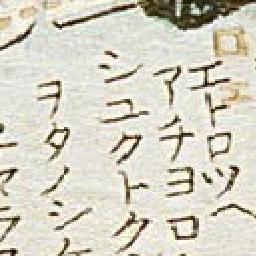 エトロツヘ
アチヨロ
シユクトク
ヲタノシケ